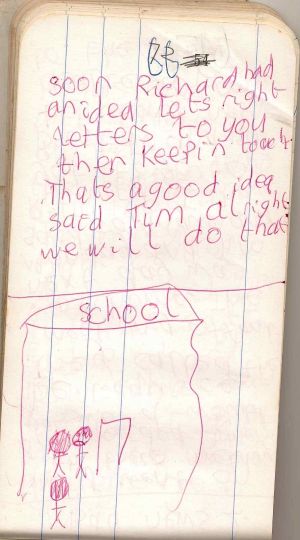 soon Richard had
an idea lets right
Letters to you
then Keepin touch
Thats a good idea
said Tim alright
we will do that
school